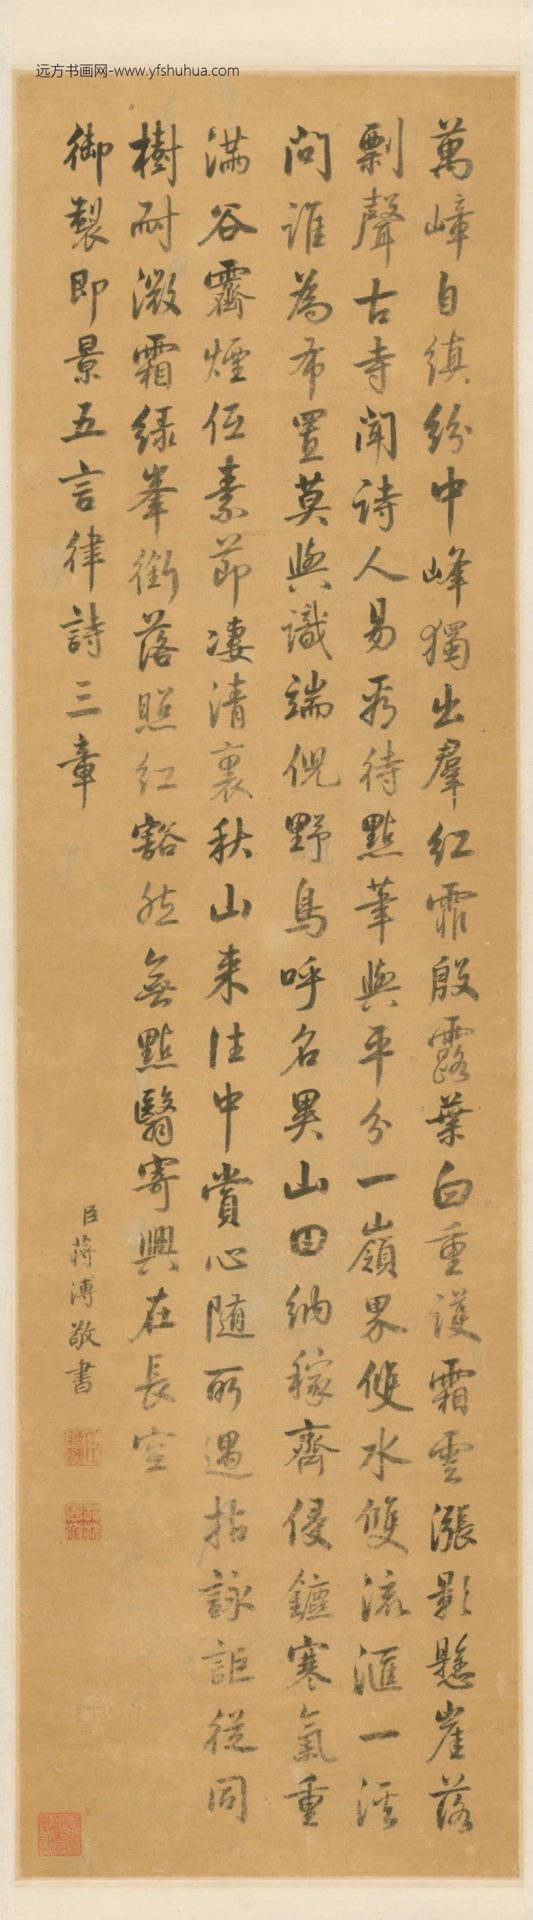 远方书画网-www.yfshuhua.com
萬嶂自縝紛中峰獨出羣紅霏殷露葉白重護霜雲漲影懸崖落
剽聲古寺聞詩人易秀待點筆與平分一嶺界雙水雙流滙一溪
問誰為布置莫與識端倪野鳥呼名異山田納稼齊侵鑪寒氣重
滿谷霽煙低素節凄清裏秋山来往中賞心随所遇拈詠詎従同
樹耐微霜緑峯銜落照紅豁然無點翳寄興在長空
御製即景五言律詩三章
臣蒋溥敬書